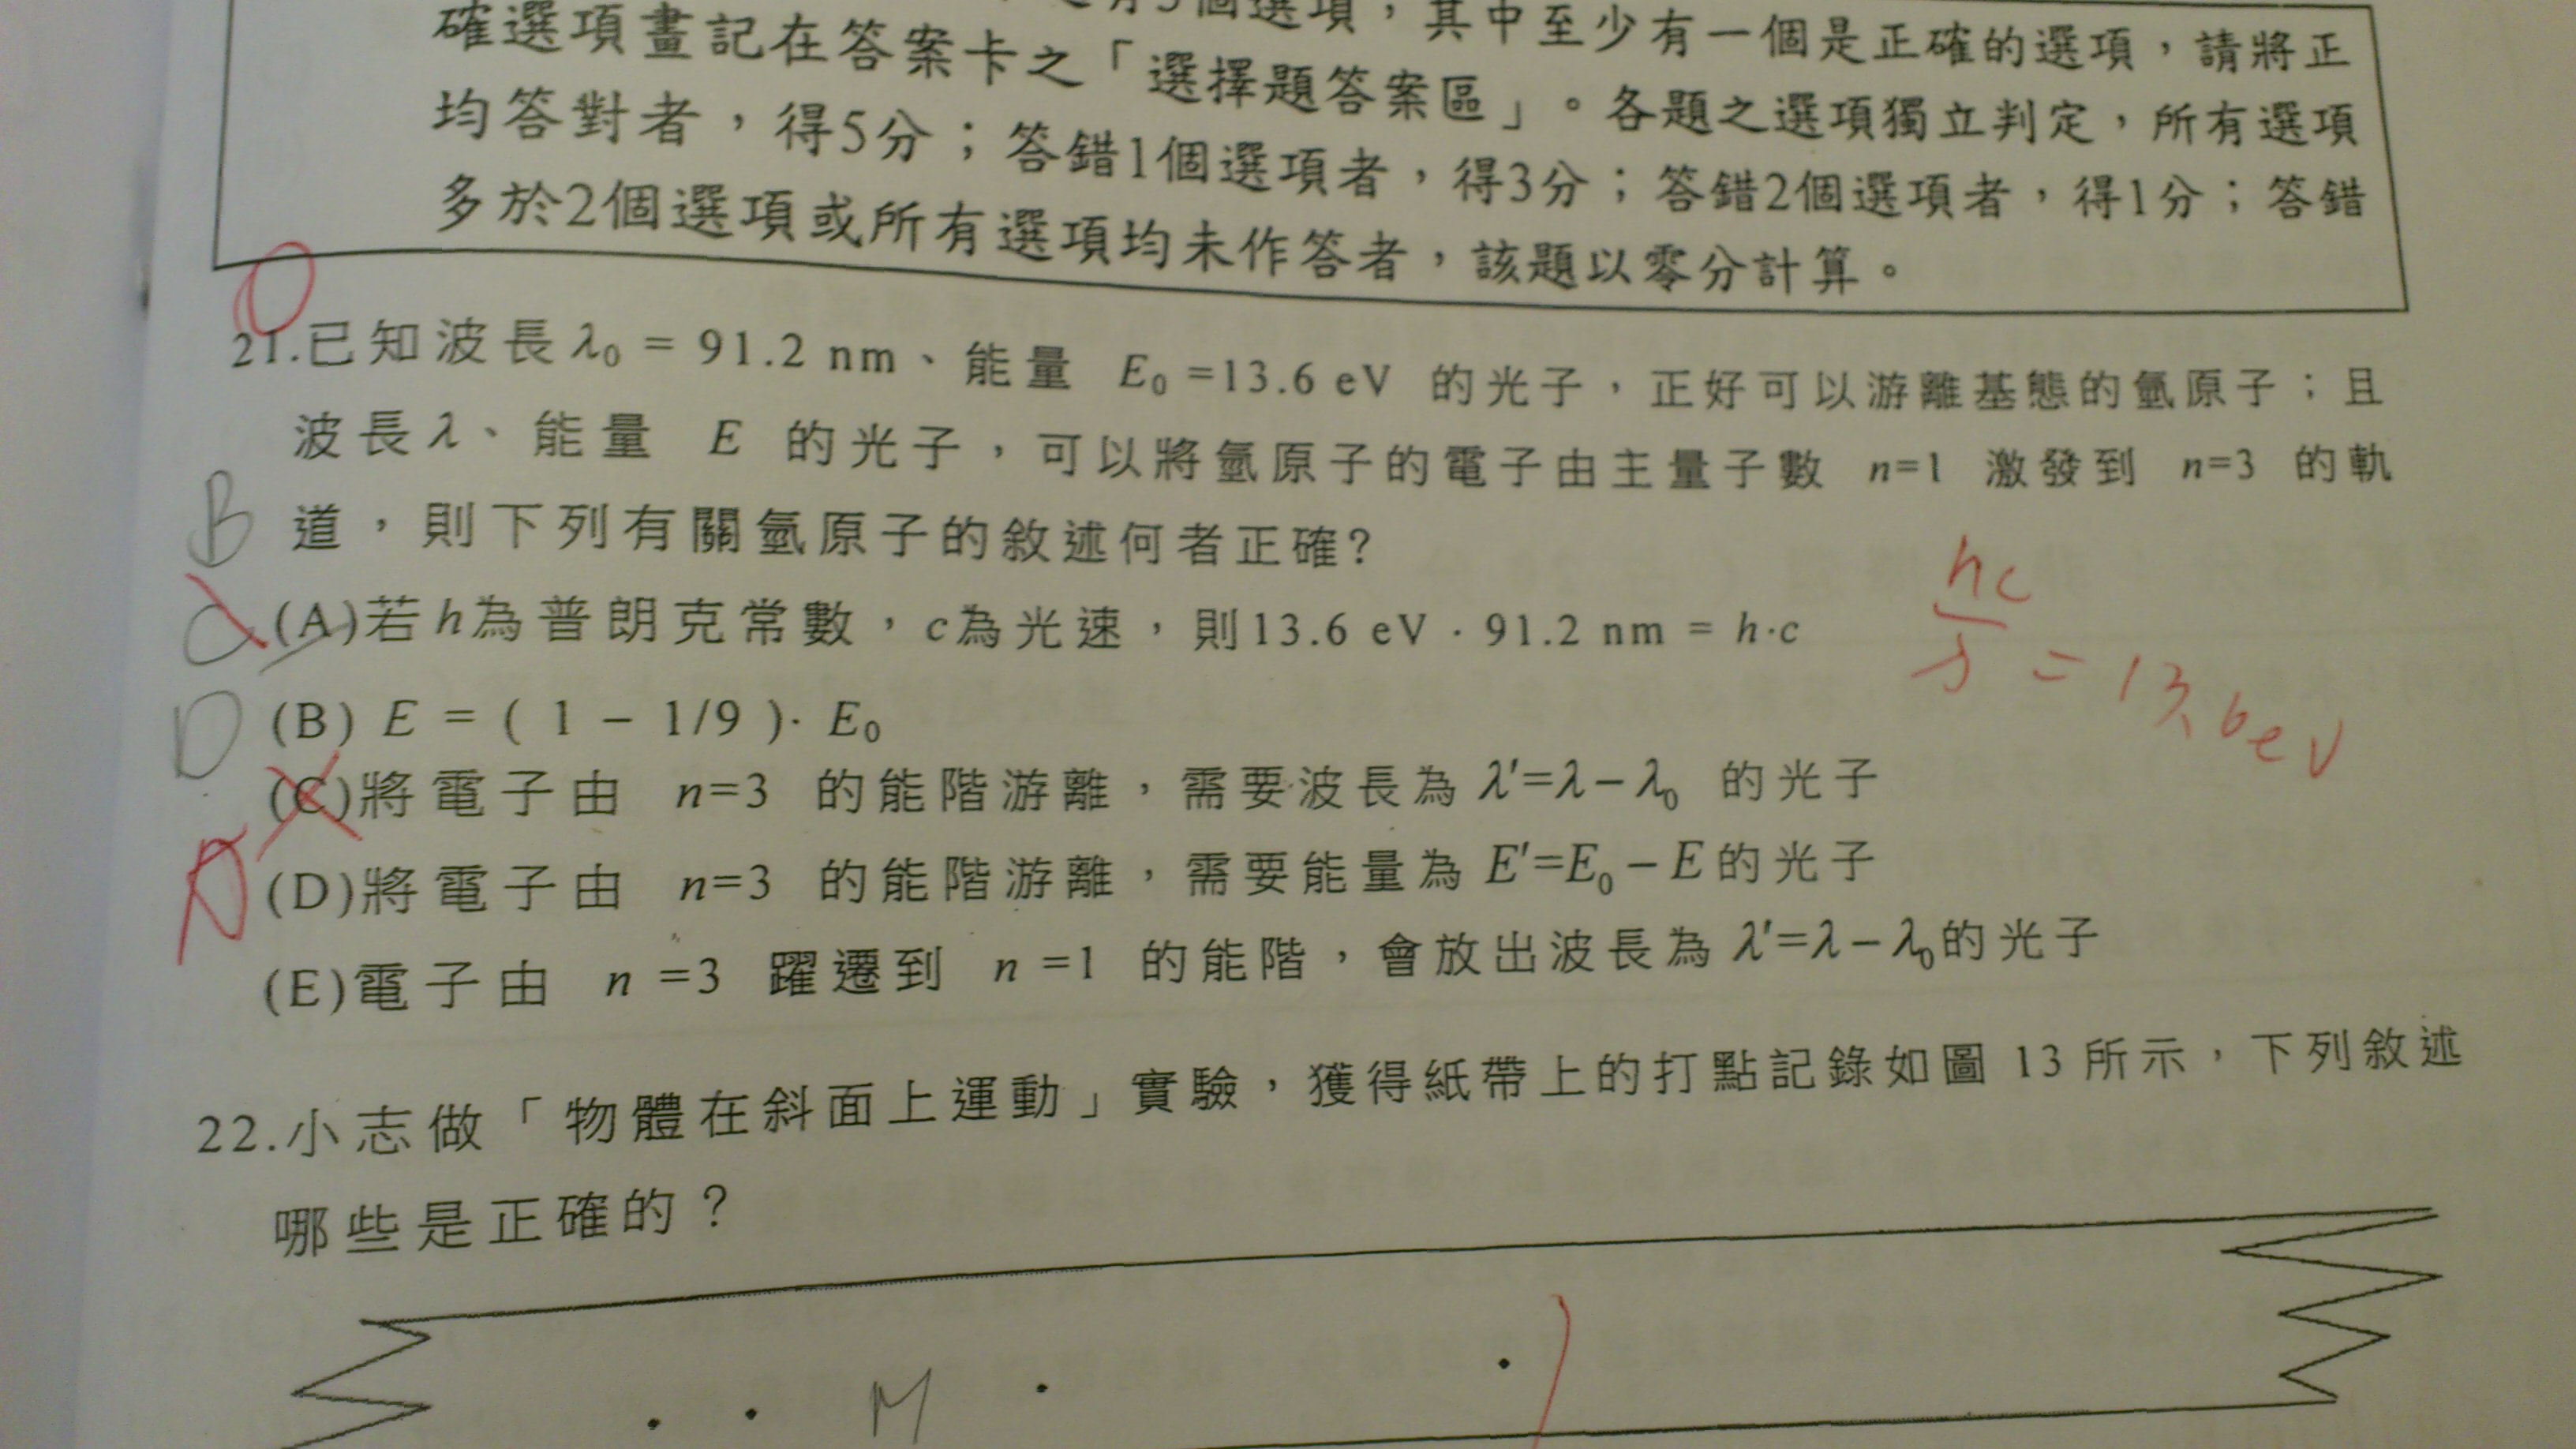 個選項，其中至少有一個是正確的選項，請將正
確選項畫記在答案卡之「選擇題答案區」。各題之選項獨立判定，所有選項
均答對者，得5分；答錯1個選項者，得3分；答錯2個選項者，得1分；答錯
多於2個選項或所有選項均未作答者，該題以零分計算。
21.已知波長λ₀ = 91.2 nm、能量 E₀ =13.6 eV 的光子，正好可以游離基態的氫原子；且
波長λ、能量 E 的光子，可以將氫原子的電子由主量子數 n=1 激發到 n=3 的軌
B
道，則下列有關氫原子的敘述何者正確?
C
(A)若h為普朗克常數，c為光速，則13.6 eV · 91.2 nm = h·c
hc/λ = 13.6eV
D
(B) E = ( 1 – 1/9 )· E₀
(C)將電子由 n=3 的能階游離，需要波長為 λ'=λ–λ₀ 的光子
A
(D)將電子由 n=3 的能階游離，需要能量為 E'=E₀–E的光子
(E)電子由 n =3 躍遷到 n =1 的能階，會放出波長為 λ'=λ–λ₀的光子
22.小志做「物體在斜面上運動」實驗，獲得紙帶上的打點記錄如圖 13 所示，下列敘述
哪些是正確的？
M